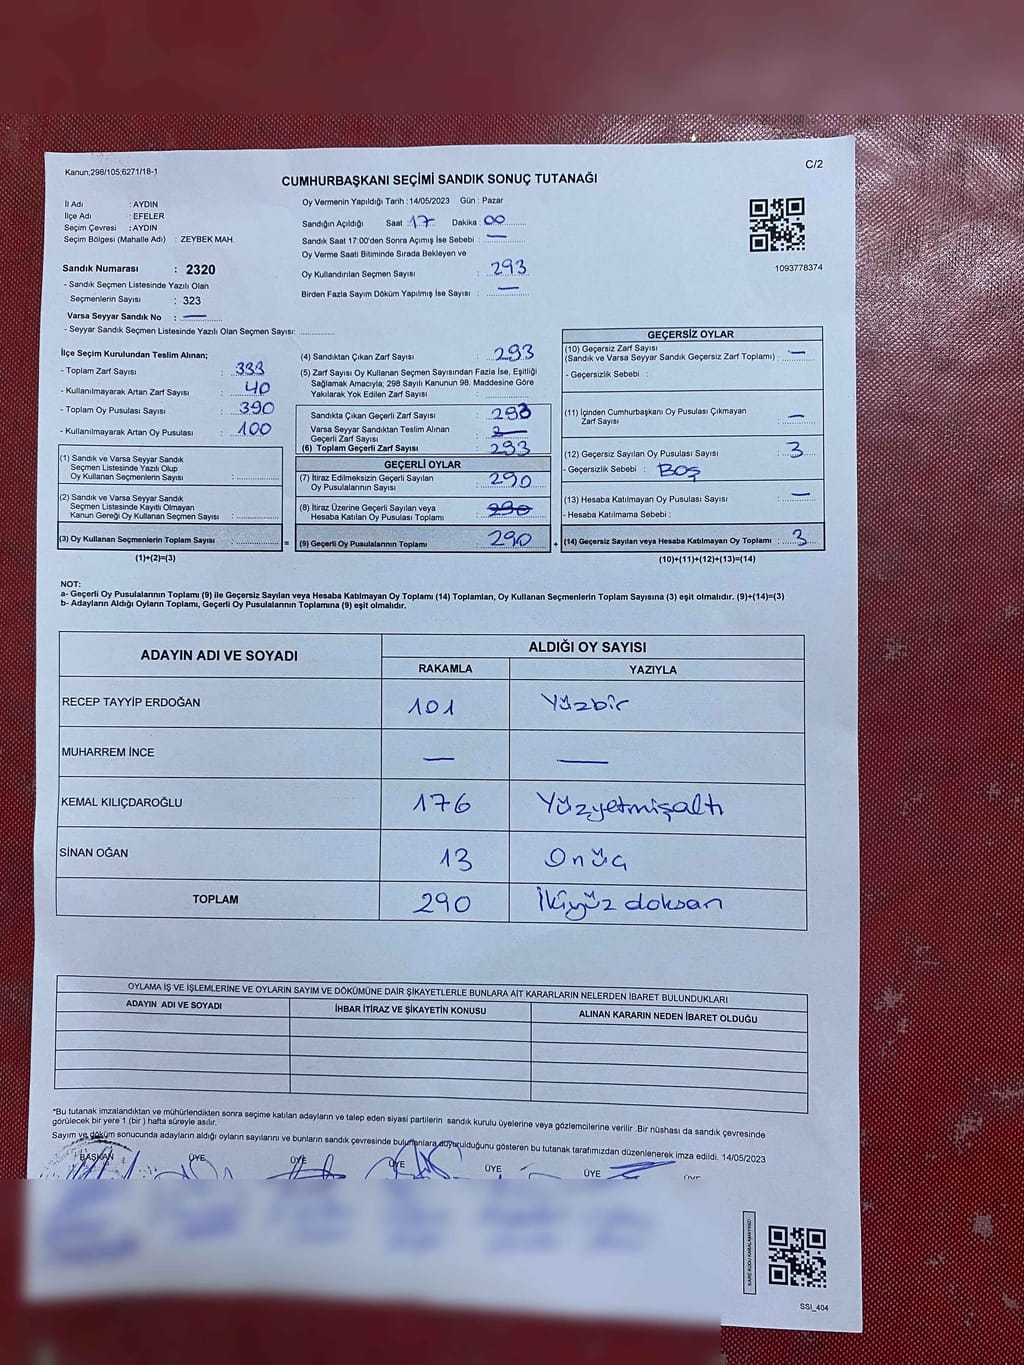 Kanun,298/105;6271/18-1
C/2
CUMHURBAŞKANI SEÇİMİ SANDIK SONUÇ TUTANAĞI
İl Adı : AYDIN
İlçe Adı : EFELER
Seçim Çevresi : AYDIN
Seçim Bölgesi (Mahalle Adı) : ZEYBEK MAH.
Sandık Numarası : 2320
- Sandık Seçmen Listesinde Yazılı Olan
Seçmenlerin Sayısı : 323
Varsa Seyyar Sandık No : —
- Seyyar Sandık Seçmen Listesinde Yazılı Olan Seçmen Sayısı:
Oy Vermenin Yapıldığı Tarih : 14/05/2023 Gün : Pazar
Sandığın Açıldığı Saat : 17 Dakika : 00
Sandık Saat 17:00'den Sonra Açımış İse Sebebi : —
Oy Verme Saati Bitiminde Sırada Bekleyen ve
Oy Kullandırılan Seçmen Sayısı : 293
Birden Fazla Sayım Döküm Yapılmış İse Sayısı : —
1093778374
İlçe Seçim Kurulundan Teslim Alınan;
- Toplam Zarf Sayısı : 333
- Kullanılmayarak Artan Zarf Sayısı : 40
- Toplam Oy Pusulası Sayısı : 390
- Kullanılmayarak Artan Oy Pusulası : 100
(1) Sandık ve Varsa Seyyar Sandık
Seçmen Listesinde Yazılı Olup
Oy Kullanan Seçmenlerin Sayısı :
(2) Sandık ve Varsa Seyyar Sandık
Seçmen Listesinde Kayıtlı Olmayan
Kanun Gereği Oy Kullanan Seçmen Sayısı :
(3) Oy Kullanan Seçmenlerin Toplam Sayısı :
(1)+(2)=(3)
(4) Sandıktan Çıkan Zarf Sayısı : 293
(5) Zarf Sayısı Oy Kullanan Seçmen Sayısından Fazla İse, Eşitliği
Sağlamak Amacıyla; 298 Sayılı Kanunun 98. Maddesine Göre
Yakılarak Yok Edilen Zarf Sayısı :
Sandıkta Çıkan Geçerli Zarf Sayısı : 293
Varsa Seyyar Sandıktan Teslim Alınan
Geçerli Zarf Sayısı :
(6) Toplam Geçerli Zarf Sayısı : 293
GEÇERLİ OYLAR
(7) İtiraz Edilmeksizin Geçerli Sayılan
Oy Pusulalarının Sayısı : 290
(8) İtiraz Üzerine Geçerli Sayılan veya
Hesaba Katılan Oy Pusulası Toplamı : 290
(9) Geçerli Oy Pusulalarının Toplamı : 290
GEÇERSİZ OYLAR
(10) Geçersiz Zarf Sayısı
(Sandık ve Varsa Seyyar Sandık Geçersiz Zarf Toplamı) : —
- Geçersizlik Sebebi :
(11) İçinden Cumhurbaşkanı Oy Pusulası Çıkmayan
Zarf Sayısı : —
(12) Geçersiz Sayılan Oy Pusulası Sayısı : 3
- Geçersizlik Sebebi : BOŞ
(13) Hesaba Katılmayan Oy Pusulası Sayısı : —
- Hesaba Katılmama Sebebi :
(14) Geçersiz Sayılan veya Hesaba Katılmayan Oy Toplamı : 3
(10)+(11)+(12)+(13)=(14)
NOT:
a- Geçerli Oy Pusulalarının Toplamı (9) ile Geçersiz Sayılan veya Hesaba Katılmayan Oy Toplamı (14) Toplamları, Oy Kullanan Seçmenlerin Toplam Sayısına (3) eşit olmalıdır. (9)+(14)=(3)
b- Adayların Aldığı Oyların Toplamı, Geçerli Oy Pusulalarının Toplamına (9) eşit olmalıdır.
ADAYIN ADI VE SOYADI
ALDIĞI OY SAYISI
RAKAMLA YAZIYLA
RECEP TAYYİP ERDOĞAN 101 Yüzbir
MUHARREM İNCE — —
KEMAL KILIÇDAROĞLU 176 Yüzyetmişaltı
SİNAN OĞAN 13 Onüç
TOPLAM 290 İkiyüz doksan
OYLAMA İŞ VE İŞLEMLERİNE VE OYLARIN SAYIM VE DÖKÜMÜNE DAİR ŞİKAYETLERLE BUNLARA AİT KARARLARIN NELERDEN İBARET BULUNDUKLARI
ADAYIN ADI VE SOYADI İHBAR İTİRAZ VE ŞİKAYETİN KONUSU ALINAN KARARIN NEDEN İBARET OLDUĞU
*Bu tutanak imzalandıktan ve mühürlendikten sonra seçime katılan adayların ve talep eden siyasi partilerin sandık kurulu üyelerine veya gözlemcilerine verilir .Bir nüshası da sandık çevresinde
görülecek bir yere 1 (bir ) hafta süreyle asılır.
Sayım ve döküm sonucunda adayların aldığı oyların sayılarını ve bunların sandık çevresinde bulunanlara duyurulduğunu gösteren bu tutanak tarafımızdan düzenlenerek imza edildi. 14/05/2023
BAŞKAN ÜYE ÜYE ÜYE ÜYE ÜYE ÜYE
SSI_404